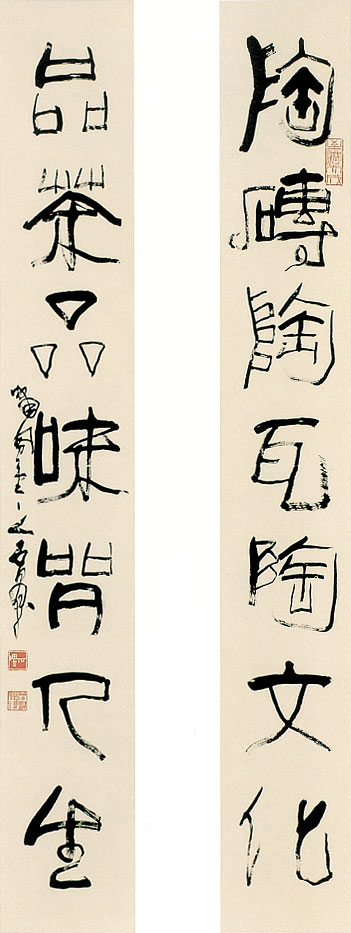 陶磚陶瓦陶文化
品茶品味品人生